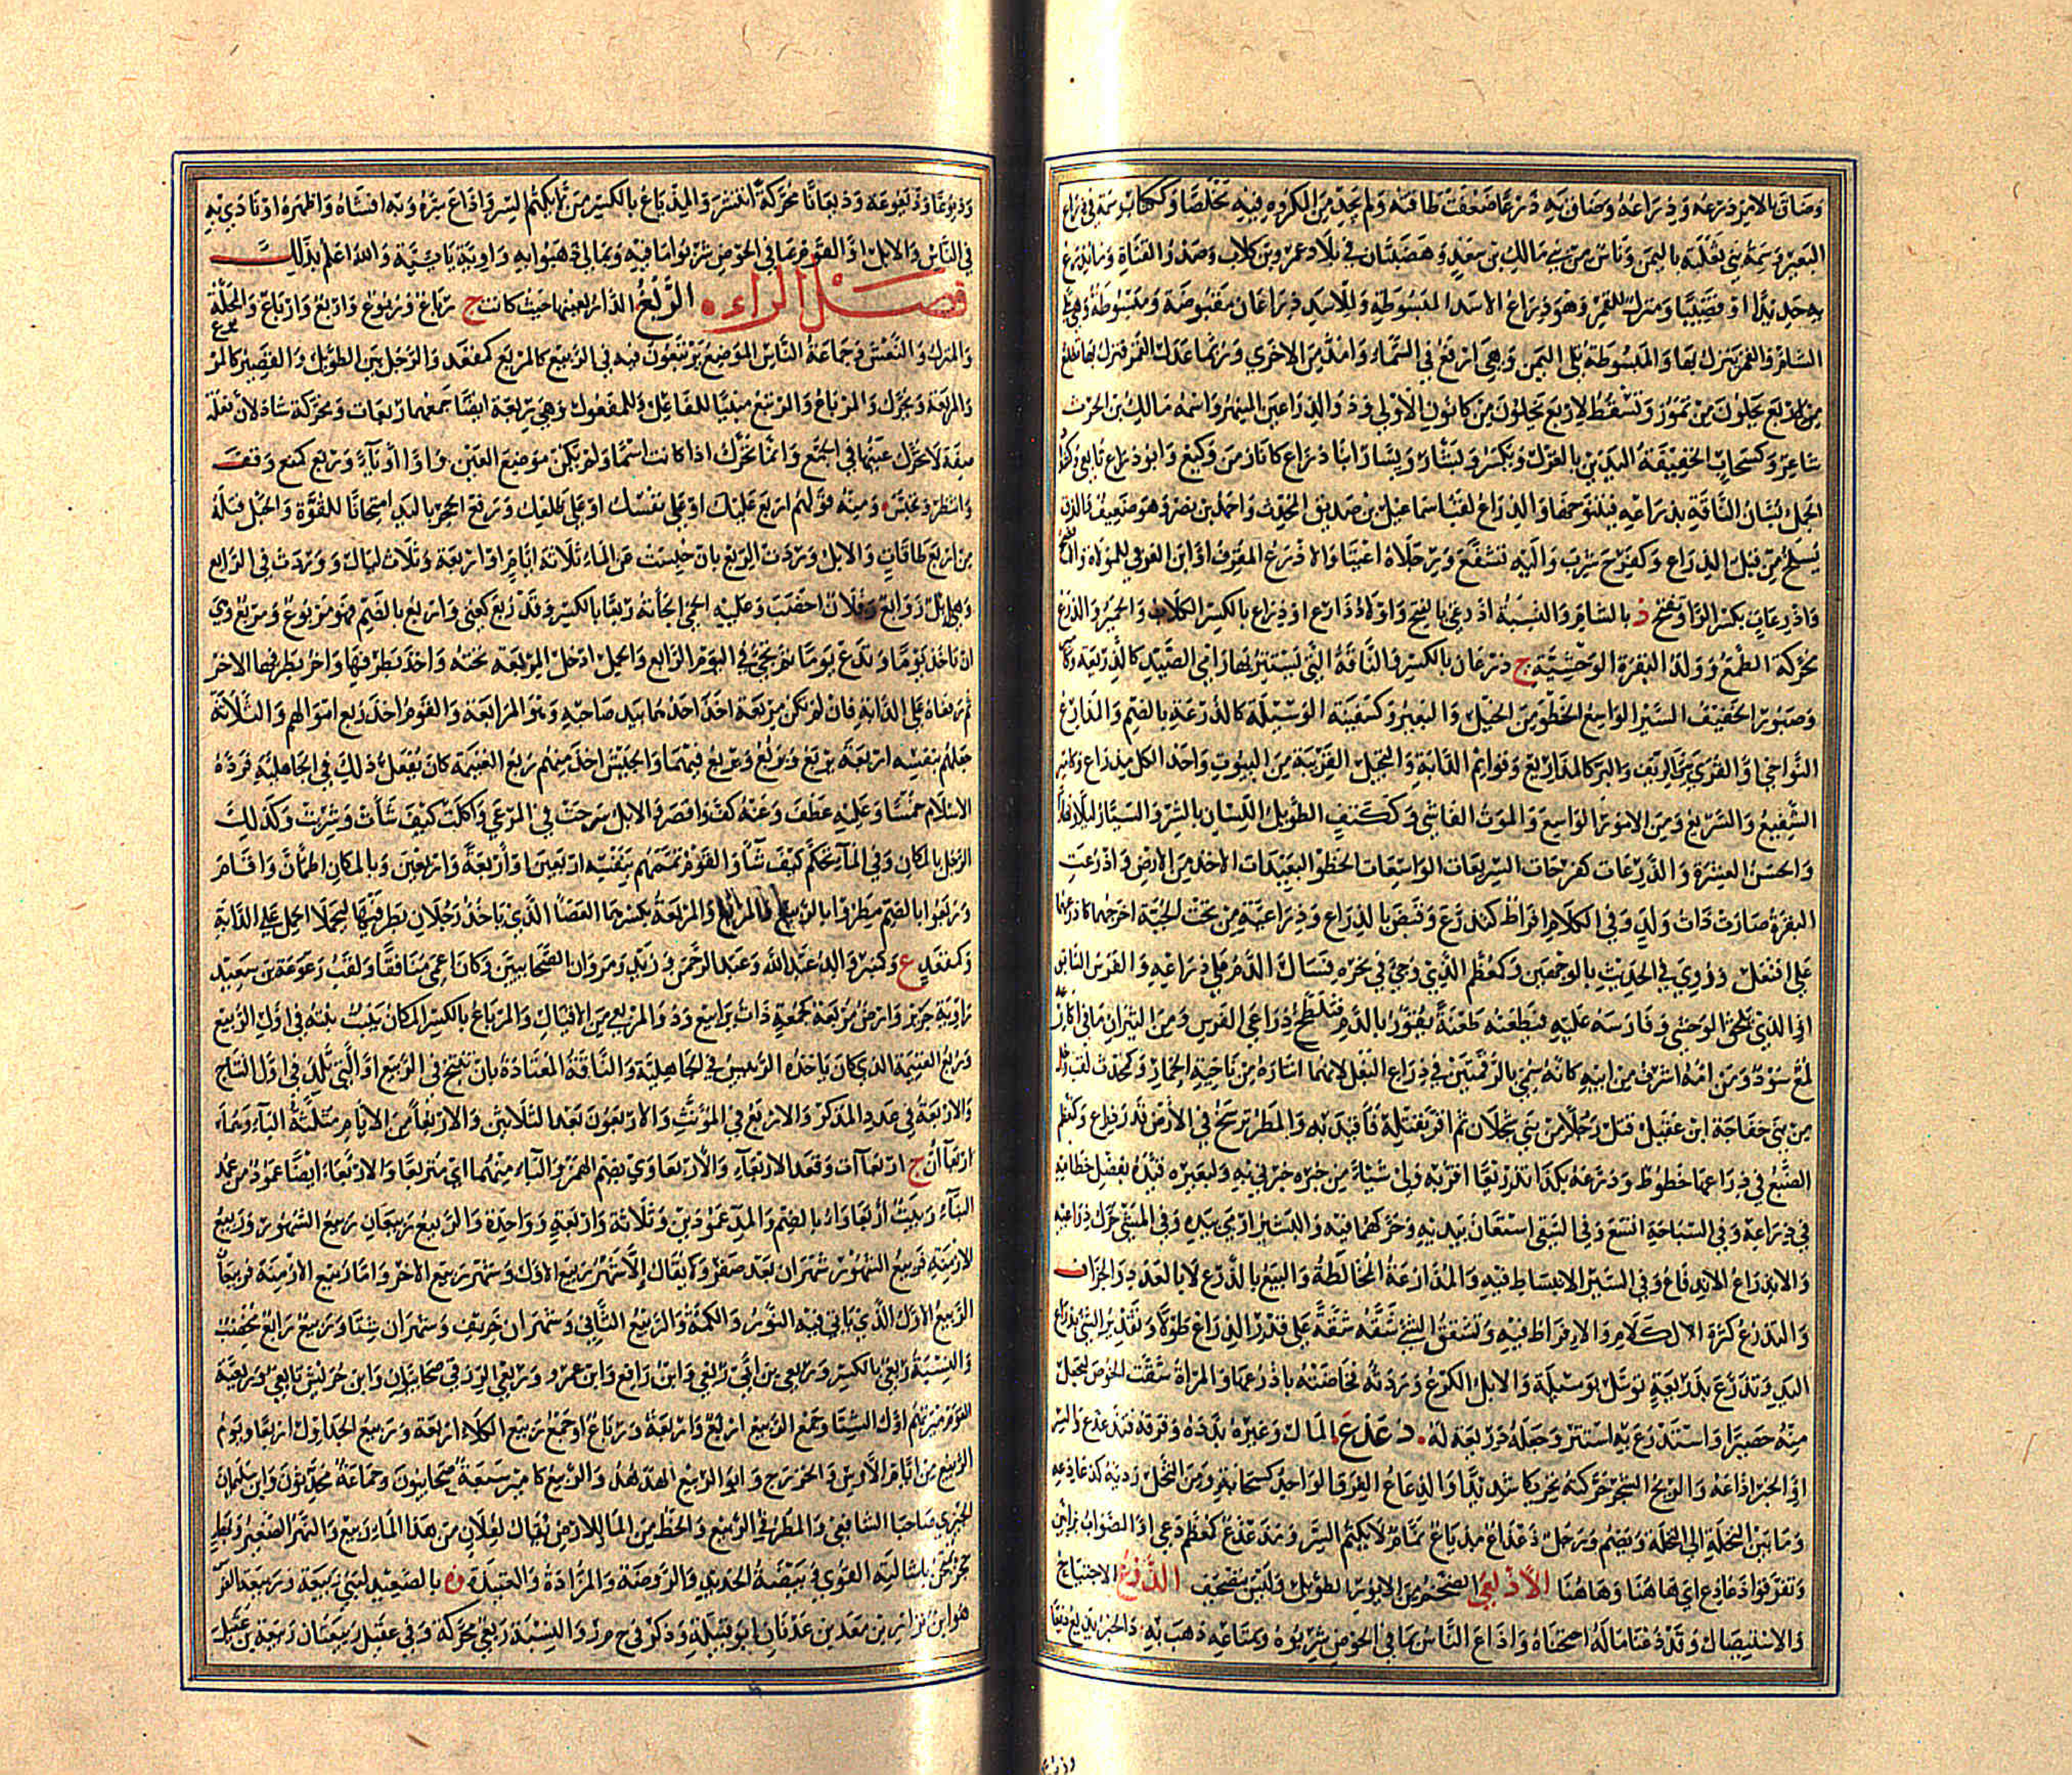 وضاق بالامر ذرعه وذراعه وضاق به ذرعا ضعفت طاقته ولم يجد من المكروه فيه مخلصا وككتاب سمة في ذراع
البعير وسمة بني ثعلبة باليمن وناس من بني مالك بن سعد وهضبتان في بلاد عمرو بن كلاب وصدر القناة وما يذرع
به حديدا او قضيبا ومنزل للقمر وهو ذراع الاسد المبسوطة وللاسد ذراعان مقبوضة ومبسوطة وهي تلي
الشام والقمر ينزل بها والمبسوطة تلي اليمن وهي ارفع في السماء وامد من الاخرى وربما عدل القمر فنزل بها تطلع
لاربع يخلون من تموز وتسقط لاربع يخلون من كانون الاول وذو الذراعين المنبهر واسمه مالك بن الحرث
شاعر وكسحاب الخفيفة اليدين بالغزل ويكسر وبشار ويسار ابنا ذراع كانا زمن وكيع وابو ذراع تابعي
الجمل لسان الناقة بذراعه فيتنوخها والذراع لقب اسماعيل بن صديق المحدث واحمد بن نصر وهو ضعيف والزق
يسلخ من قبل الذراع وكفرح شرب واليه تشفع ورجلاه اعيتا والاذرع المقرف او ابن العربي للمولاة
واذرعات بكسر الراء وتفتح د بالشام والنسبة اذرعي بالفتح واولاد ذارع او ذراع بالكسر الكلاب والحمير والذرع
محركة الطمع وولد البقرة الوحشية ج ذرعان بالكسر والناقة التي يستتر بها رامي الصيد كالذريعة
وصبور الخفيف السير الواسع الخطو من الخيل والبعير وكسفينة الوسيلة كالذرعة بالضم والمذارع
النواحي او القرى بين الريف والبر كالمذاريع وقوائم الدابة والنخيل القريبة من البيوت واحد الكل مذراع وكامير
الشفيع والسريع ومن الامور الواسع والموت الفاشي وككتف الطويل اللسان بالشر والسيار ليلا ونهارا
والحسن العشرة والذرعات كفرحات السريعات الواسعات الخطو البعيدات الاخذ من الارض واذرعت
البقرة صارت ذات ولد وفي الكلام افراط كتذرع وقبض بالذراع وذراعيه من تحت الجبة اخرجهما كاذرعهما
على افتعل وروي في الحديث بالوجهين وكمعظم الذي وجئ في نحره فسال الدم على ذراعيه والفرس السابق
او الذي يلحق الوحشي وفارسه عليه فيطعنه طعنة تفور بالدم فتلطخ ذراعي الفرس ومن الثيران ما في اكارعه
لمع سود ومن امه اشرف من ابيه كانه سمي بالرقمتين في ذراع البغل لانهما اتتاه من ناحية الحمار وكمحدث لقب رجل
من بني خفاجة ابن عقيل قتل رجلا من بني عجلان ثم اقر بقتله فاقيد به والمطر يرسخ في الارض قدر ذراع وكعظم
الضبع في ذراعها خطوط وذرعه بكذا تذريعا اقر به ولي شيئا من خبره خبرني به ولبعيره قيده بفضل خطامه
في ذراعيه وفي السباحة اتسع وفي السقي استعان بيديه وحركهما فيه والبشير اومى بيده وفي المشي حرك ذراعيه
والانذراع الاندفاع وفي السير الانبساط فيه والمذارعة المخالطة والبيع بالذرع لا بالعدد والجزاف
والتذرع كثرة الكلام والافراط فيه وتشقق الشيء شقة شقة على قدر الذراع طولا وتقدير الشيء بذراع
اليد وتذرع بذريعة توسل بوسيلة والابل الكرع وردته فخاضته باذرعها والمراة شقت الخوص لتجعل
منه حصيرا واستذرع به استتر وجعله ذريعة له. ذعذع المال وغيره بدده وفرقه فتذعذع والسر
او الخبر اذاعه والريح الشجر حركته تحريكا شديدا والذعاع الفرق الواحد كسحابة ومن النخل رديئه كذعاذعه
وما بين النخلة الى النخلة ويضم ورجل ذعذاع مذياع نمام لا يكتم السر ومذعذع كمعظم دعي او الصواب بزاي
وتفرقوا ذعاذع اي هاهنا وهاهنا الاذلعي الضخم من الايور الطويل وليس بتصحيف الذوع الاجتياح
والاستيصال وقد ذعنا ماله اجتحناه واذاع الناس بما في الحوض شربوه وبمتاعه ذهب به والخبر يذيع ذيعا
وذيوعا وذيعوعة وذيعانا محركة انتشر والمذياع بالكسر من لا يكتم السر واذاع سره وبه افشاه واظهره او نادى به
في الناس والابل او القوم بما في الحوض شربوا ما فيه وبمالي ذهبوا به واوية يائية والله اعلم بذلك
فصل الراء الربع الدار بعينها حيث كانت ج رباع وربوع واربع وارباع والمحلة
والمنزل والنعش وجماعة الناس الموضع يرتبعون فيه في الربيع كالمربع كمقعد والرجل بين الطويل والقصير كالمربوع
والربعة ويحرك والمرباع والمرتبع مبنيا للفاعل وللمفعول وهي ربعة ايضا جمعهما ربعات ومحركة شاذ لان فعلة
صفة لا تحرك عينها في الجمع وانما تحرك اذا كانت اسما ولم تكن موضع العين واوا او ياء وربع كمنع وقف
وانتظر وتحبس. ومنه قولهم اربع عليك او على نفسك او على ظلعك ورفع الحجر باليد امتحانا للقوة والحبل فتله
من اربع طاقات والابل وردت الربع بان حبست عن الماء ثلاثة ايام او اربعة وثلاث ليال ووردت في الرابع
وهي ابل روابع وفلان اخصب وعليه الحمى جاءته ربعا بالكسر وقد ربع كعني واربع بالضم فهو مربوع ومربع وهي
ان تاخذ يوما وتدع يومين ثم تجيء في اليوم الرابع والحمل ادخل المربعة تحته واخذ بطرفها واخر بطرفها الاخر
ثم رفعاه على الدابة فان لم تكن مربعة اخذ احدهما بيد صاحبه وهو المرابعة والقوم اخذ ربع اموالهم والثلاثة
جعلهم بنفسه اربعة يربع ويربع ويربع فيهما والجيش اخذ منهم ربع الغنيمة كان يفعل ذلك في الجاهلية فرده
الاسلام خمسا وعليه عطف وعنه كف واقصر والابل سرحت في المرعى واكلت كيف شاءت وشربت وكذلك
الرجل بالمكان وفي الماء تحكم كيف شاء والقوم تممهم بنفسه اربعين او اربعة واربعين وبالمكان اطمان واقام
وربعوا بالضم مطروا بالربيع والمربع والمربعة بكسرهما العصا الذي ياخذ رجلان بطرفيها ليحملا الحمل على الدابة
وكمقعد ع وكمنبر والد عبد الله وعبد الرحمن وزيد ومروان الصحابيين وكان اعمى منافقا ولقب وعوعة بن سعيد
راوية جرير وارض مربعة كمجمعة ذات يرابيع وذو المربعي من الاقيال والمرباع بالكسر المكان ينبت نبته في اول الربيع
وربع الغنيمة الذي كان ياخذه الرئيس في الجاهلية والناقة المعتادة بان تنتج في الربيع او التي تلد في اول النتاج
والاربعة في عدد المذكر والاربع في المؤنث والاربعون بعد الثلاثين والاربعاء من الايام مثلثة الباء
اربعاآن ج اربعاآت وقعد الاربعاء والاربعاوى بضم الهمزة والباء منهما اي متربعا والاربعاء ايضا عمود من عمد
البناء وبيت اربعاواء بالضم والمد على عمودين وثلاثة واربعة وواحدة والربيع ربيعان ربيع الشهور وربيع
الازمنة فربيع الشهور شهران بعد صفر ولا يقال الا شهر ربيع الاول وشهر ربيع الاخر واما ربيع الازمنة فربيعان
الربيع الاول الذي ياتي فيه النور والكماة والربيع الثاني وشهران خريف وشهران شتا وربيع رابع مخصب
والنسبة ربعي بالكسر وربعي بن ابي ربعي وابن رافع وابن عمرو وربعي الزرقي صحابيون وابن حراش تابعي وربعية
القوم ميرتهم اول الشتا وجمع الربيع اربعاء واربعة ورباع او جمع ربيع الكلاء اربعة وربيع الجداول اربعاء ويوم
الربيع من ايام الاوس والخزرج وابو الربيع الهدهد والربيع كامير سبعة صحابيون وجماعة محدثون وابن سليمان
الجيزي صاحبا الشافعي والمطر في الربيع والحظ من الماء للارض يقال لفلان من هذا الماء ربيع والنهر الصغير
حجر تمتحن باشالته القوى وبيضة الحديد والروضة والمزادة والعتيدة وة بالصعيد لبني ربيعة وربيعة الفرس
هو ابن نزار بن معد بن عدنان ابو قبيلة وذكر في ح م ر والنسبة ربعي محركة وفي عقيل ربيعتان ربيعة بن عقيل